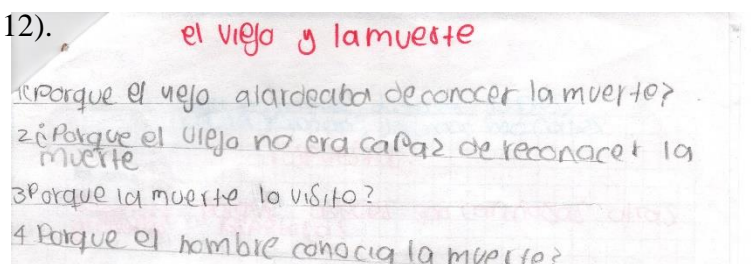 12).
el viejo y lamuerte
1¿porque el viejo alardeaba deconocer la muerte?
2¿Porque el viejo no era capaz de reconocer la
muerte
3Porque la muerte lo visito?
4 Porque el hombre conocia la muerte?